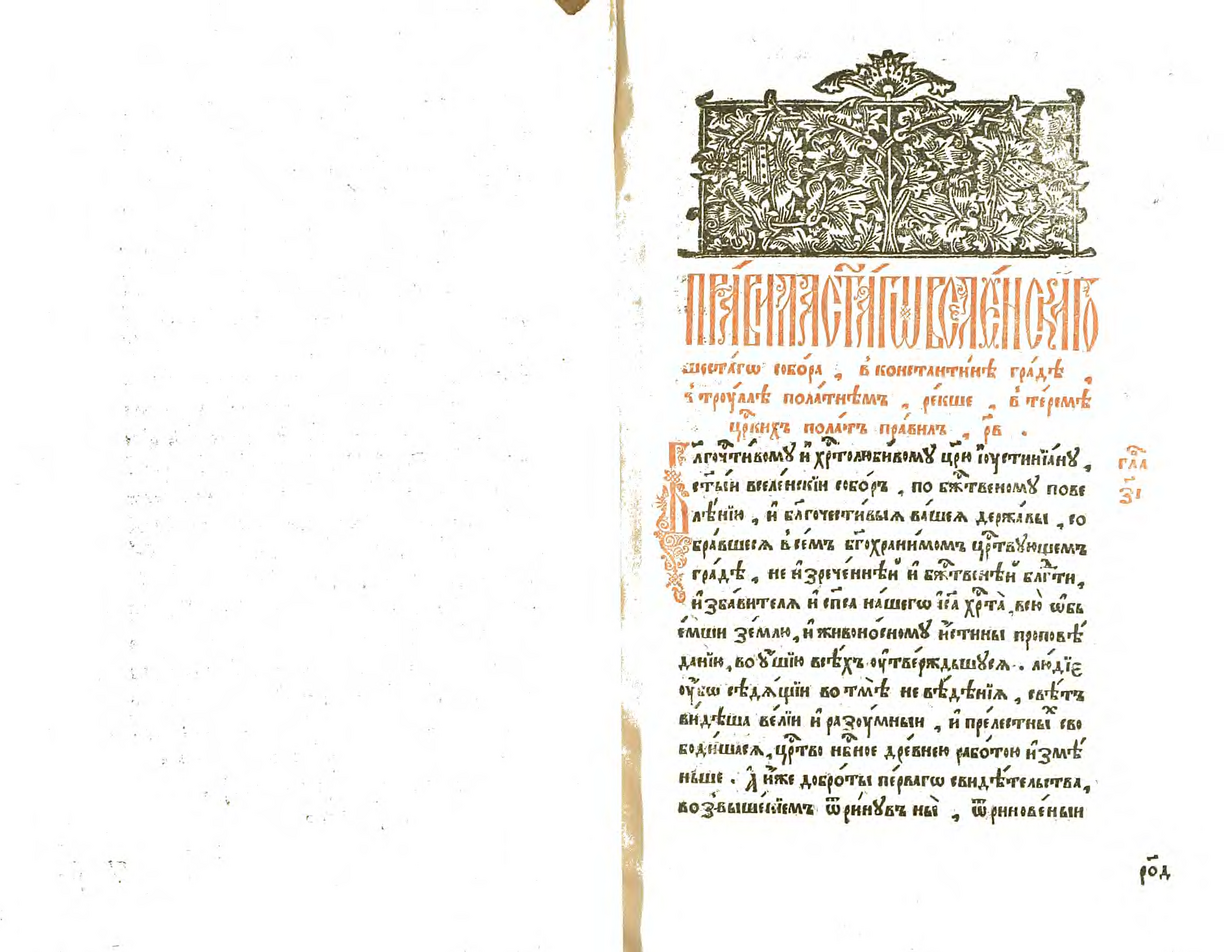 ПРА́ВИЛА СТ҃А́ГѠ ВСЕЛЕ́НСКАГѠ
шеста́гѡ собо́ра , в҆ константи́нѣ гра́дѣ ,
в҆ трꙋ́ллѣ пола́тнѣмъ , ре́кше , в҆ те́ремѣ
цр҃кихъ пола́тъ пра́вилъ , р҃в .
Бл҃гочⷭ҇ти́вомꙋ и҆ хрⷭ҇толюби́вомꙋ цр҃ю і҆оустинїа́нꙋ ,
ст҃ы́и вселе́нскїи собо́ръ , по бжⷭ҇твеномꙋ пове
лѣ́нїю , и҆ бл҃гочести́выѧ ва́шеѧ держа́вы , со
бра́вшесѧ в҆ се́мъ бг҃охрани́момъ црⷭ҇твꙋ́ющемъ
гра́дѣ , не и҆зрече́ннѣй и҆ бжⷭ҇твенѣй бл҃гⷣти ,
и҆зба́вителѧ и҆ сп҃са на́шегѡ і҆с҃а хрⷭ҇та̀ , всю̀ ѡ҆бъ
е́мши зе́млю , и҆ живоно́сномꙋ и҆́стины проповѣ́
да́нїю , во ᲂу҆́шїю всѣ́хъ ᲂу҆твержд́ьшꙋсѧ . лю́дїе
ᲂу҆́бѡ сѣдѧ́щїи во тмѣ̀ невѣ́дѣнїѧ , свѣ́тъ
ви́дѣша ве́лїи и҆ разоу́мныи , и҆ преле́стныⷯ сво
боди́шасѧ , црⷭ҇тво нбⷭ҇ное дре́внею рабо́тою и҆змѣ́
ньше . А҆ и҆́же добро́ты пе́рвагѡ свидѣ́тельства ,
возвыше́нїемъ ѿри́нꙋвъ ны̀ , ѿринове́ныи
гла
з҃і
ро́д